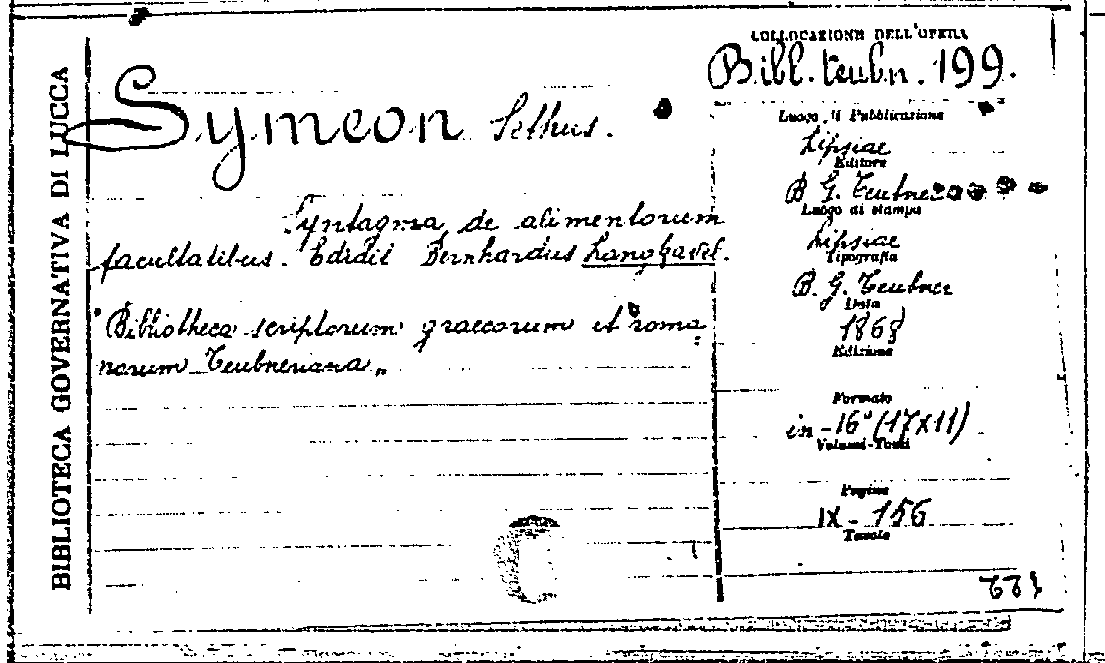 BIBLIOTECA GOVERNATIVA DI LUCCA
Symeon Sethus.
Syntagma de alimentorum
facultatibus. Edidit Bernhardus Langkavel.
"Bibliotheca scriptorum graecorum et roma
norum Teubneriana„
COLLOCAZIONE DELL'OPERA
Bibl. teubn. 199.
Luogo di Pubblicazione
Lipsiae
Editore
B. G. Teubner
Luogo di stampa
Lipsiae
Tipografia
B. G. Teubner
Data
1868
Edizione
Formato
in-16° (17x11)
Volumi-Tomi
Pagine
IX - 156
Tavole